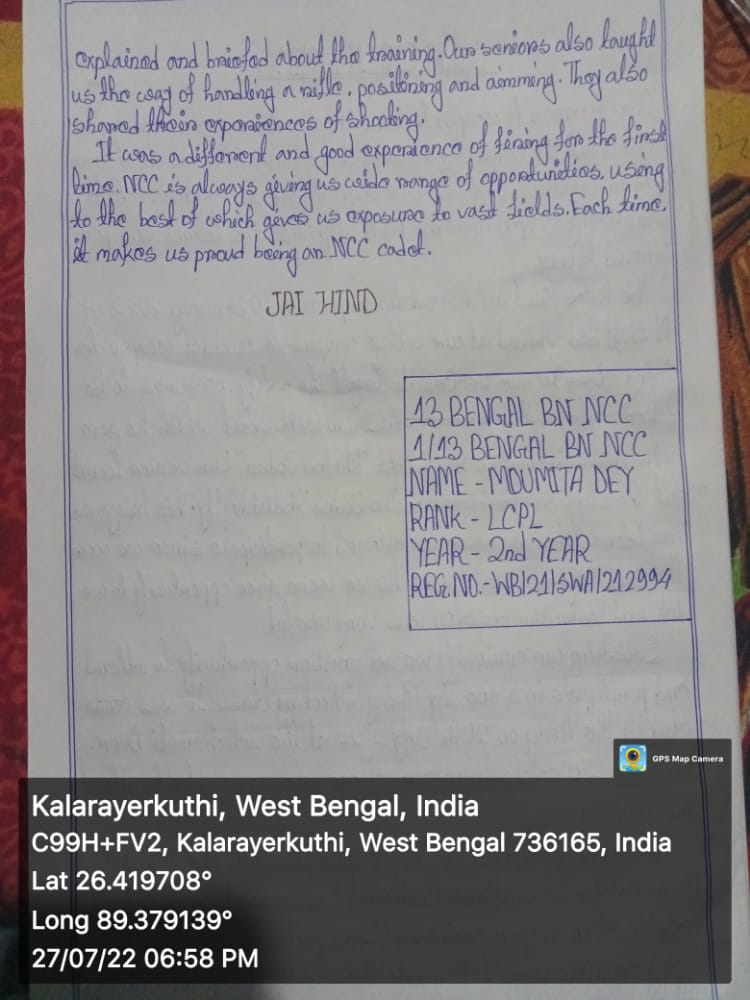 explained and briefed about the training. Our seniors also taught
us the way of handling a rifle, positining and aimming. They also
shared their experiences of shooting.
It was a different and good experience of firing for the first
time. NCC is always giving us wide range of opportunities, using
to the best of which gives us exposure to vast fields. Each time,
it makes us proud being an NCC cadet.
JAI HIND
13 BENGAL BN NCC
1/13 BENGAL BN NCC
NAME - MOUMITA DEY
RANK - LCPL
YEAR - 2nd YEAR
REG. NO. - WB/21/SWA/212994
GPS Map Camera
Kalarayerkuthi, West Bengal, India
C99H+FV2, Kalarayerkuthi, West Bengal 736165, India
Lat 26.419708°
Long 89.379139°
27/07/22 06:58 PM